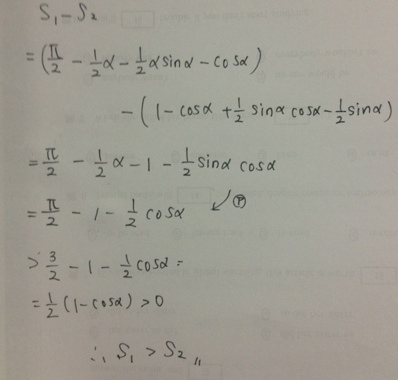 S₁ - S₂
= (π/2 - 1/2 α - 1/2 α sinα - cosα)
- (1 - cosα + 1/2 sinα cosα - 1/2 sinα)
= π/2 - 1/2 α - 1 - 1/2 sinα cosα
= π/2 - 1 - 1/2 cosα ↙ Ⓟ
> 3/2 - 1 - 1/2 cosα =
= 1/2 (1 - cosα) > 0
∴ S₁ > S₂ 〃